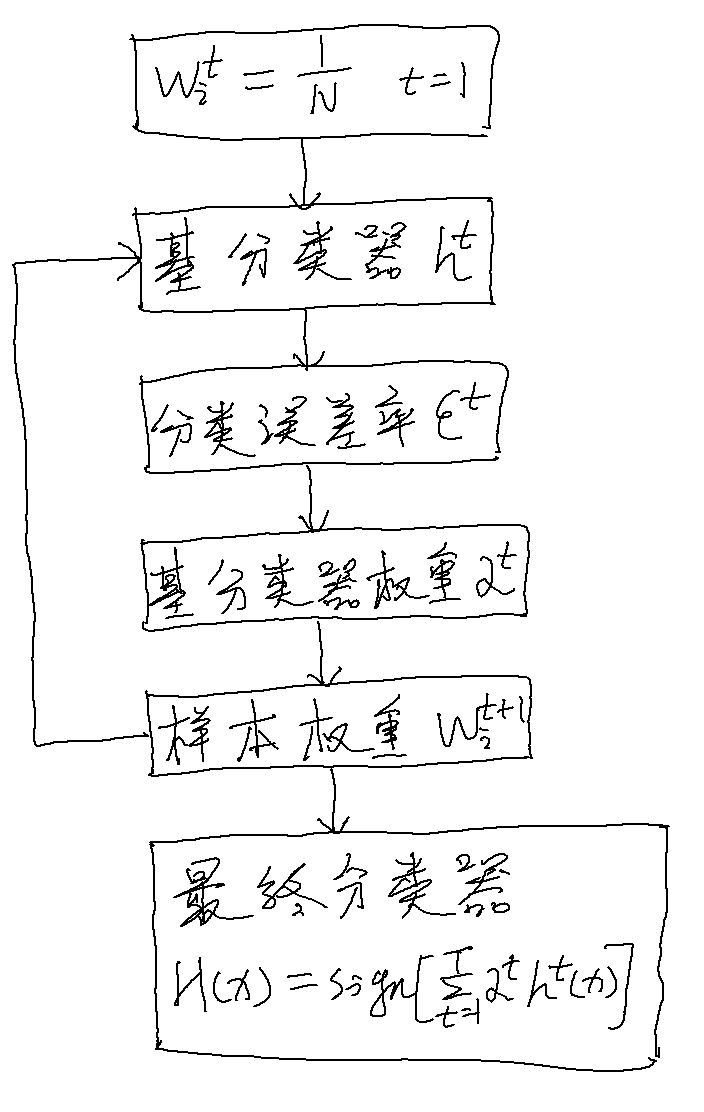 w_i^t = 1/N t=1
基分类器 h^t
分类误差率 ε^t
基分类器权重 α^t
样本权重 w_i^{t+1}
最终分类器
H(x) = sign[∑_{t=1}^T α^t h^t(x)]